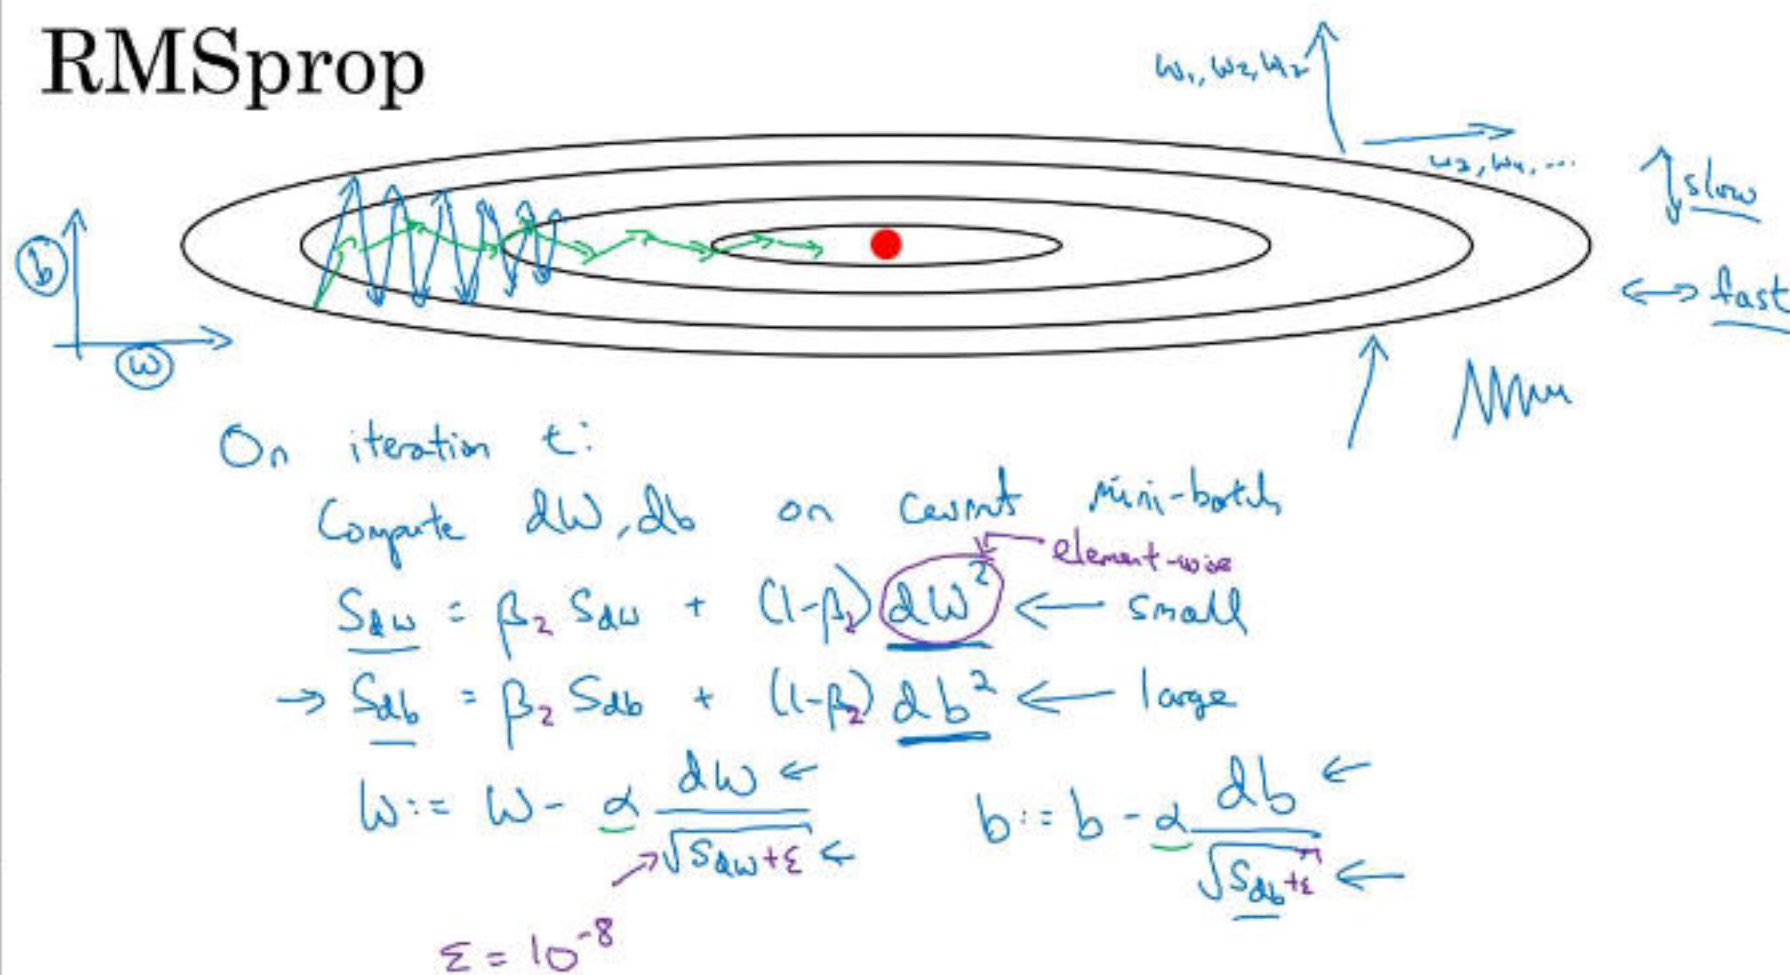 RMSprop
w₁, w₂, w₂
w₃, w₄, ...
slow
fast
b
w
On iteration t:
Compute dW, db on current mini-batch
element-wise
Sdw = β₂ Sdw + (1-β₂) dW² ← small
→ Sdb = β₂ Sdb + (1-β₂) db² ← large
W := W - α dW / √Sdw+ε ←
b := b - α db / √Sdb+ε ←
ε = 10⁻⁸